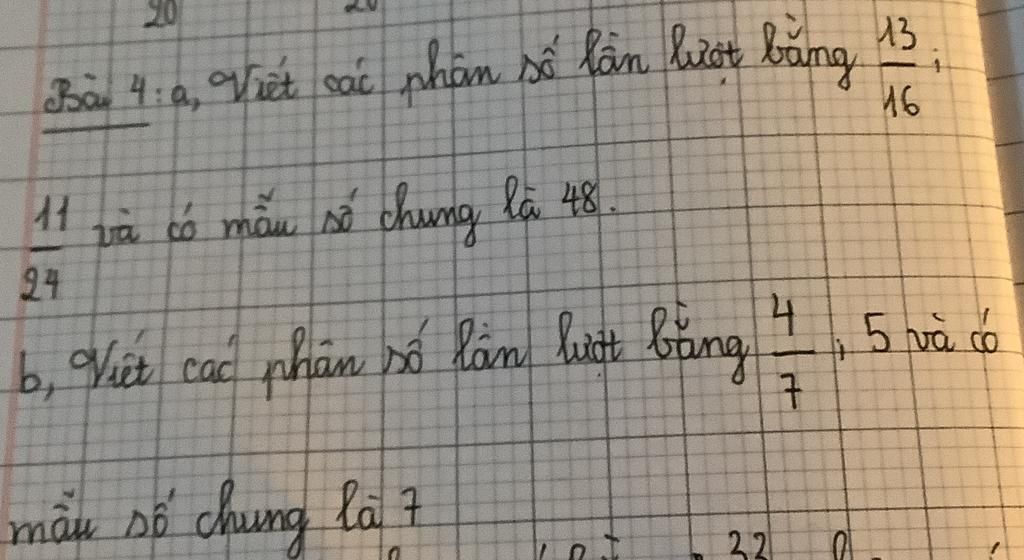 20 20
Bài 4: a, Viết các phân số lần lượt bằng 13/16;
11/24 và có mẫu số chung là 48.
b, Viết các phân số lần lượt bằng 4/7; 5 và có
mẫu số chung là 7